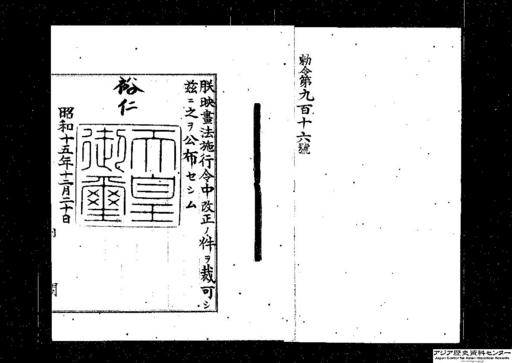 勅令第九百十六號
朕映畫法施行令中改正ノ件ヲ裁可シ
茲ニ之ヲ公布セシム
裕仁
天皇御璽
昭和十五年十二月二十日
アジア歴史資料センター
Japan Center for Asian Historical Records